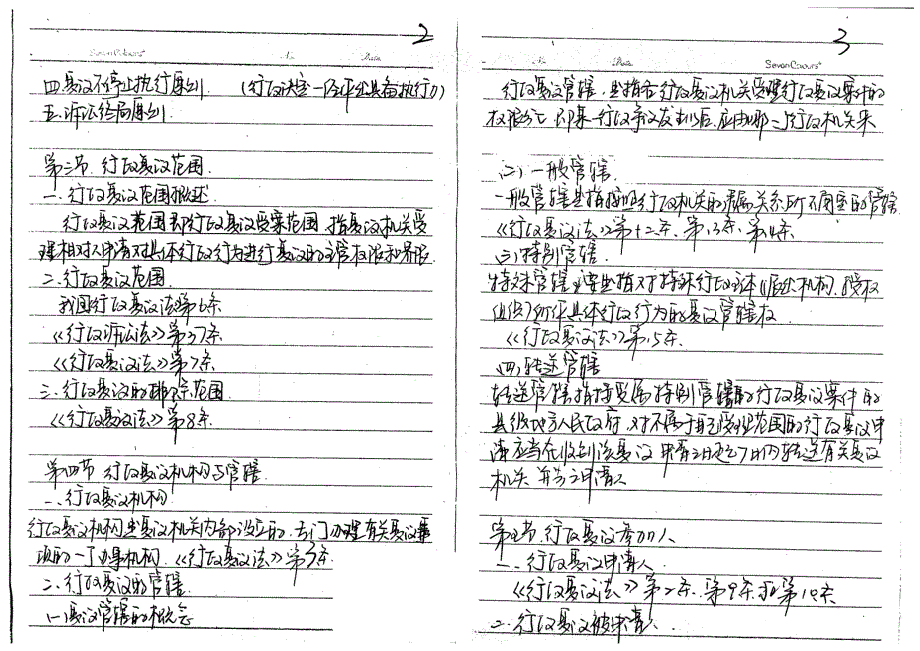 2
SevenColours
No
Date
四.复议不停止执行原则. (行政决定一经作出具备执行力)
五.诉讼终局原则.
第三节.行政复议范围.
一.行政复议范围概述
行政复议范围即行政复议受案范围,指复议机关受
理相对人申请对具体行政行为进行复议的主管权限和界限.
二.行政复议范围.
我国行政复议法第6条.
《行政诉讼法》第37条.
《行政复议法》第7条.
三.行政复议的排除范围
《行政复议法》第8条.
第四节 行政复议机构与管辖.
一.行政复议机构.
行政复议机构是复议机关内部设立的,专门办理有关复议事
项的一个办事机构.《行政复议法》第3条.
二.行政复议的管辖.
(一)复议管辖的概念
3
No
Date
SevenColours
行政复议管辖,是指各行政复议机关受理行政复议案件的
权限分工,即某一行政争议发生以后,应由哪一个行政机关来
(二)一般管辖.
一般管辖是指按照行政机关的隶属关系所确定的管辖
《行政复议法》第十二条.第13条.第14条.
(三)特别管辖.
特殊管辖主要是指对特殊行政主体(派出机构、授权
组织)所作具体行政行为的复议管辖权.
《行政复议法》第15条.
(四)转送管辖
转送管辖,指接受属特别管辖的行政复议案件的
县级地方人民政府,对不属于自己受理范围的行政复议申
请应当在收到该复议申请之日起7日内转送有关复议
机关,并告之申请人
第五节.行政复议参加人
一.行政复议申请人.
《行政复议法》第2条.第9条和第10条
二.行政复议被申请人.